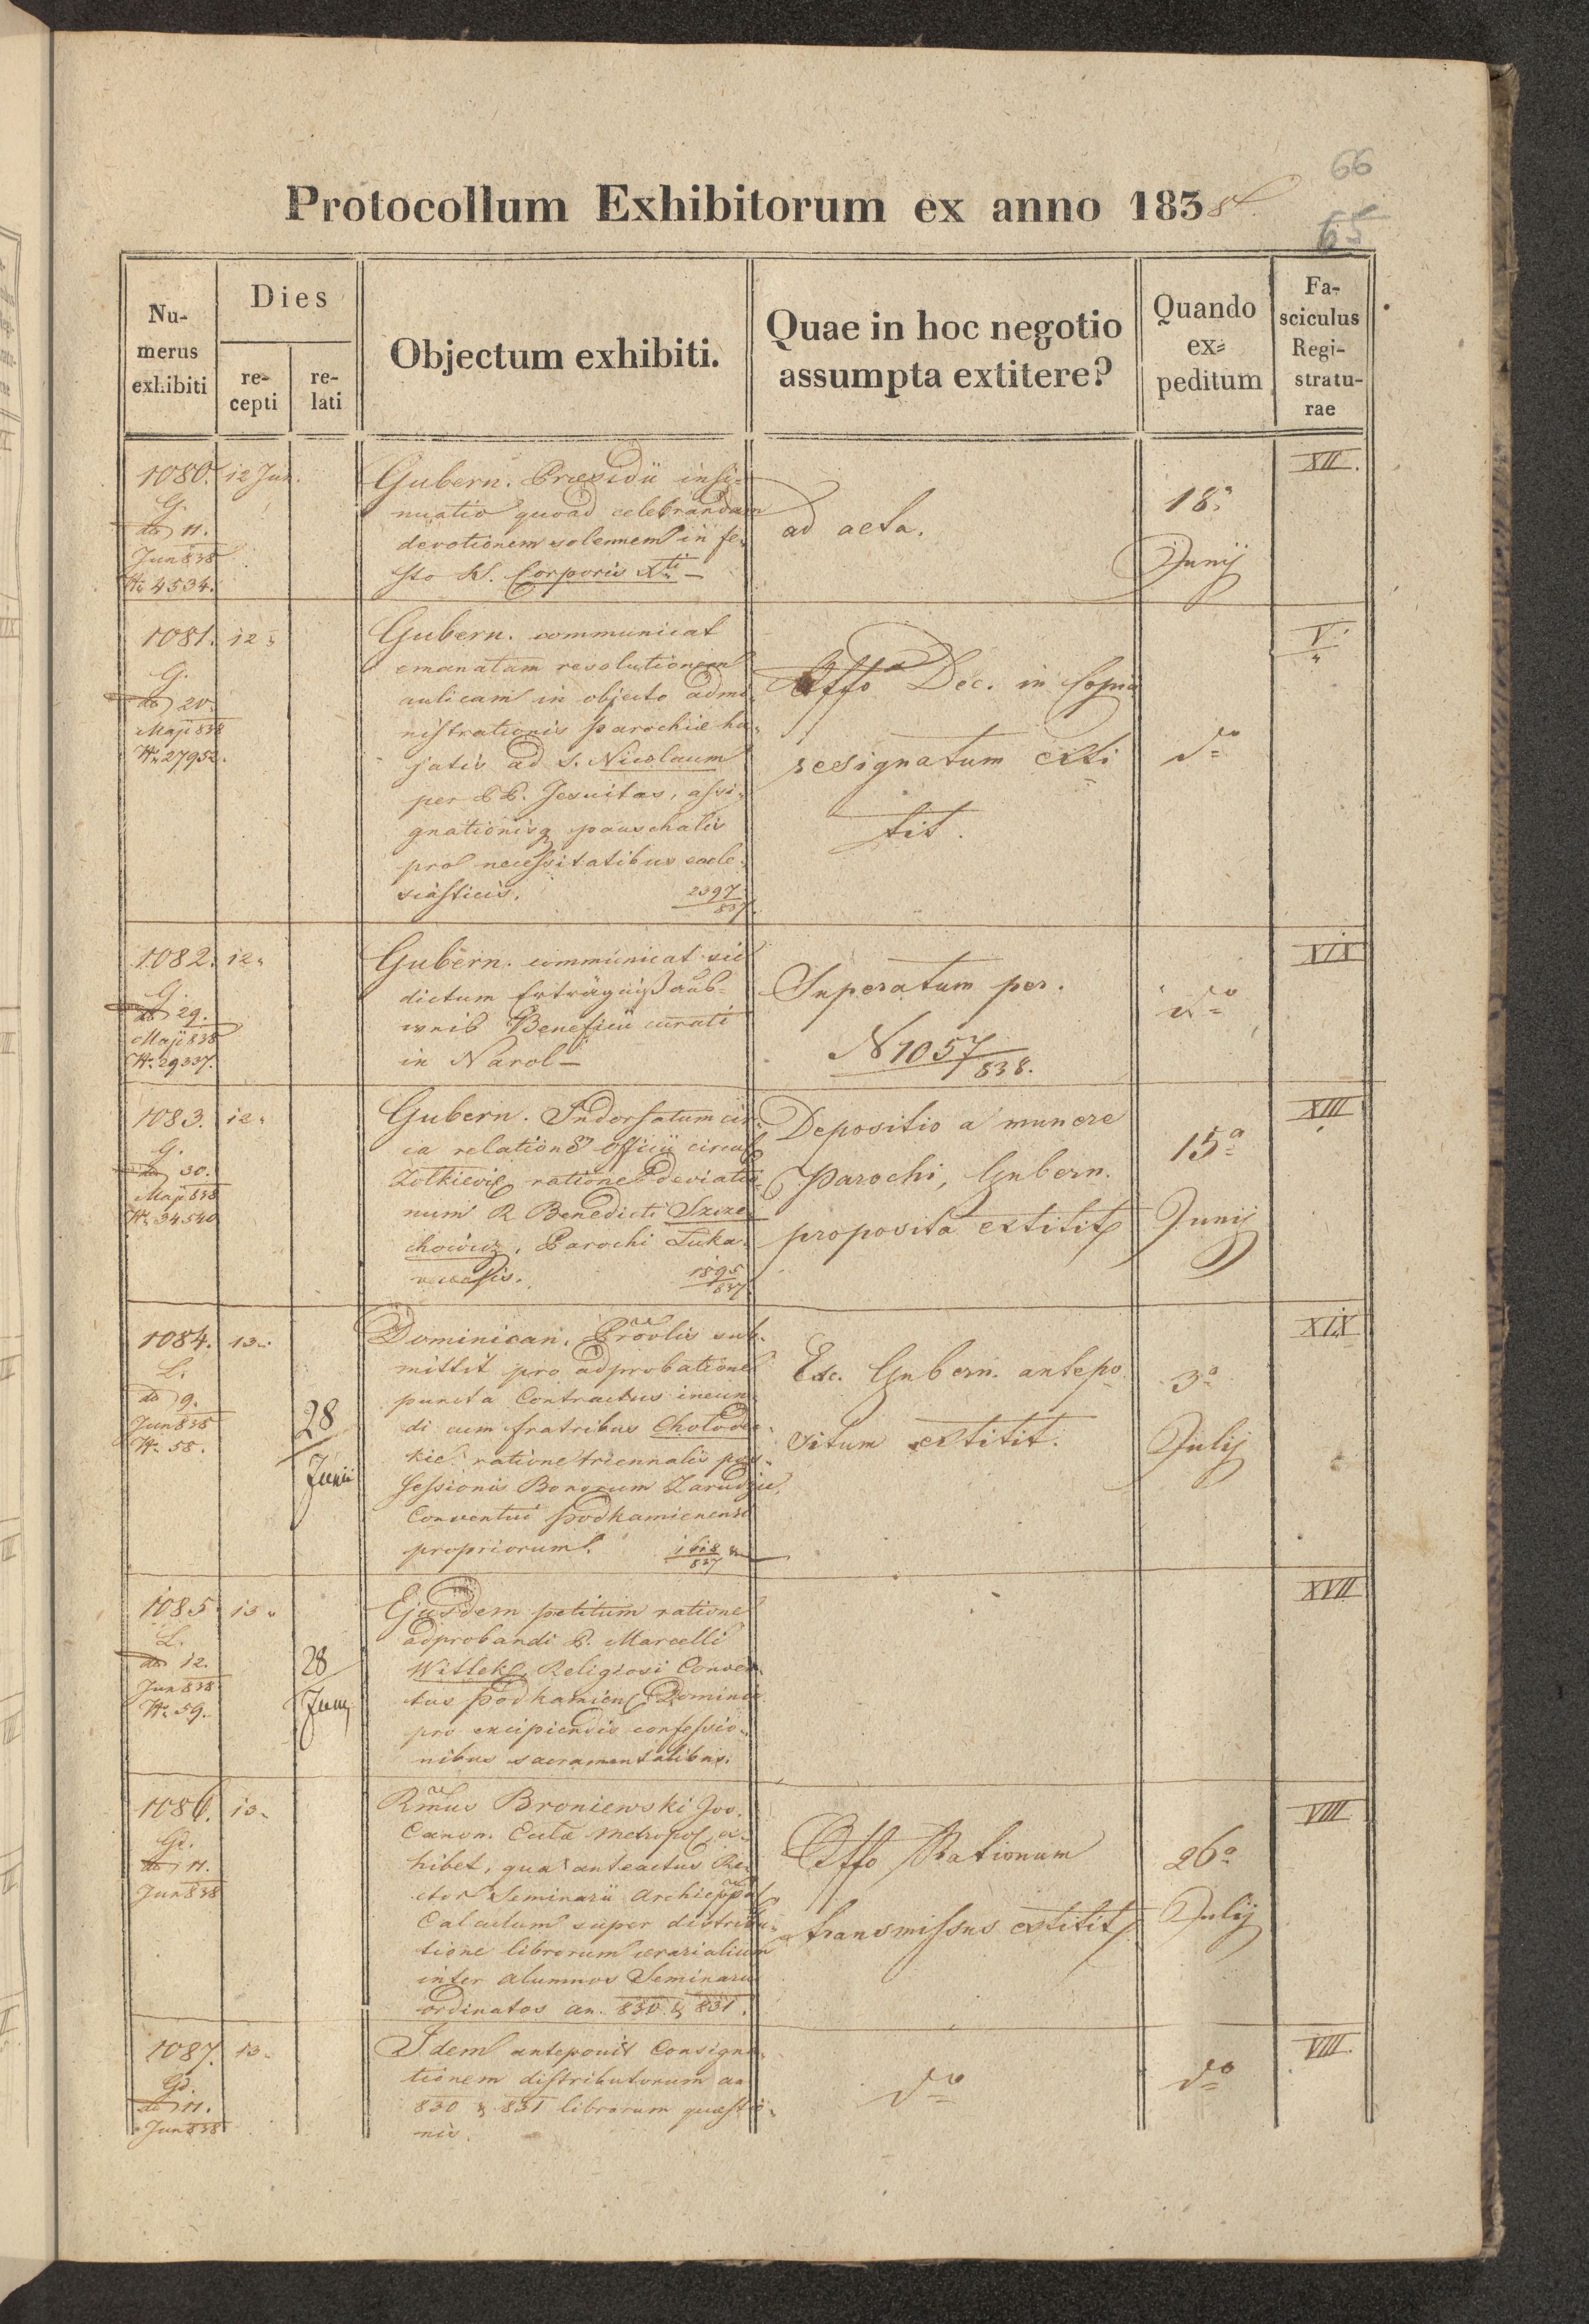 66
65
Protocollum Exhibitorum ex anno 1838
Nu-
merus
exhibiti
Dies
re-
cepti
re-
lati
Objectum exhibiti.
Quae in hoc negotio
assumpta extitere?
Quando
ex-
peditum
Fa-
sciculus
Regi-
stratu-
rae
1080. 12 Jun.
G.
do 11.
Jun 838
N. 4534.
Gubern. Præsidii insi-
nuatio quoad celebrandam
devotionem solennem in fe-
sto S. Corporis Xti –
ad acta.
18a
Junij
XII.
1081. 12
G.
do 20.
Maji 838
N. 27952.
Gubern. communicat
emanatam resolutionem
aulicam in objecto admi-
nistrationis Parochiæ hu-
jatis ad S. Nicolaum
per PP. Jesuitas, assi-
gnationisq pauschalis
pro necessitatibus eccle-
siasticis. 2397/837.
Offo Dec. in Copia
resignatum exti
tit.
do
V.
1082. 12
G.
do 29.
Maji 838
N. 29337.
Gubern. communicat sic
dictum Erträgnißaus-
weis Beneficii curati
in Narol –
Superatum per.
N 1057/838.
do
XIX
1083. 12
G.
do 30.
Maji 838
N. 34540
Gubern. Indorsatum cir-
ca relation Officii circul
Zolkievi ratione deviatio-
num R Benedicti Szcze-
chowicz, Parochi Luka-
vecensis. 1595/837
Depositio a munere
Parochi, Gubern.
proposita extitit
15a
Junij
XIII
1084. 13
L.
do 9.
Jun 838
N. 58.
28
Junii
Dominican. Provlis sub-
mittit pro adprobatione
puncta Contractus ineun-
di cum fratribus Cholodec-
kie ratione triennalis pos-
sessionis Bonorum Zarudzie,
Conventui Podkamienensi
propriorum.
Exc. Gubern. antepo
situm extitit.
3a
Julij
XIX
1085. 13
L.
do 12.
Jun 838
N. 59.
28
Junij
Ejusdem petitum ratione
adprobandi P. Marcelli
Witlek, Religiosi Conven-
tus Podkamien Dominic
pro excipiendis confessio-
nibus sacramentalibus.
XVII
1086. 13
Gd.
do 11.
Jun 838
Rmus Broniewski Jos.
Canon. Ecctæ Metropol, ex-
hibet, qua anteactus Re-
ctor Seminarii Archieppal
Calculum super distribu-
tione librorum ærarialium
inter alumnos Seminarii
ordinatos an. 830 & 831.
Offo Rationum
transmissus extitit
26a
Julij
VIII
1087. 13
Gd.
do 11.
Jun 838
Idem anteponit Consigna-
tionem distributorum aa
830 & 831 librorum quæstio-
nis.
do
do
VIII.